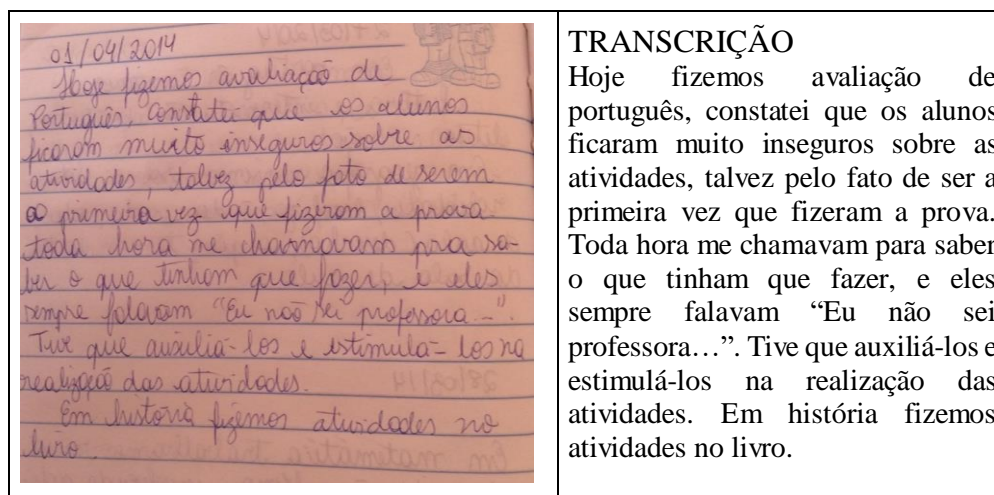 01/04/2014
Hoje fizemos avaliação de
Português, constatei que os alunos
ficaram muito inseguros sobre as
atividades, talvez pelo fato de serem
a primeira vez que fizeram a prova.
toda hora me chamavam pra sa-
ber o que tinham que fazer, e eles
sempre falavam "Eu não sei professora...".
Tive que auxiliá-los e estimulá-los na
realização das atividades.
Em história fizemos atividades no
livro.
TRANSCRIÇÃO
Hoje fizemos avaliação de
português, constatei que os alunos
ficaram muito inseguros sobre as
atividades, talvez pelo fato de ser a
primeira vez que fizeram a prova.
Toda hora me chamavam para saber
o que tinham que fazer, e eles
sempre falavam “Eu não sei
professora…”. Tive que auxiliá-los e
estimulá-los na realização das
atividades. Em história fizemos
atividades no livro.